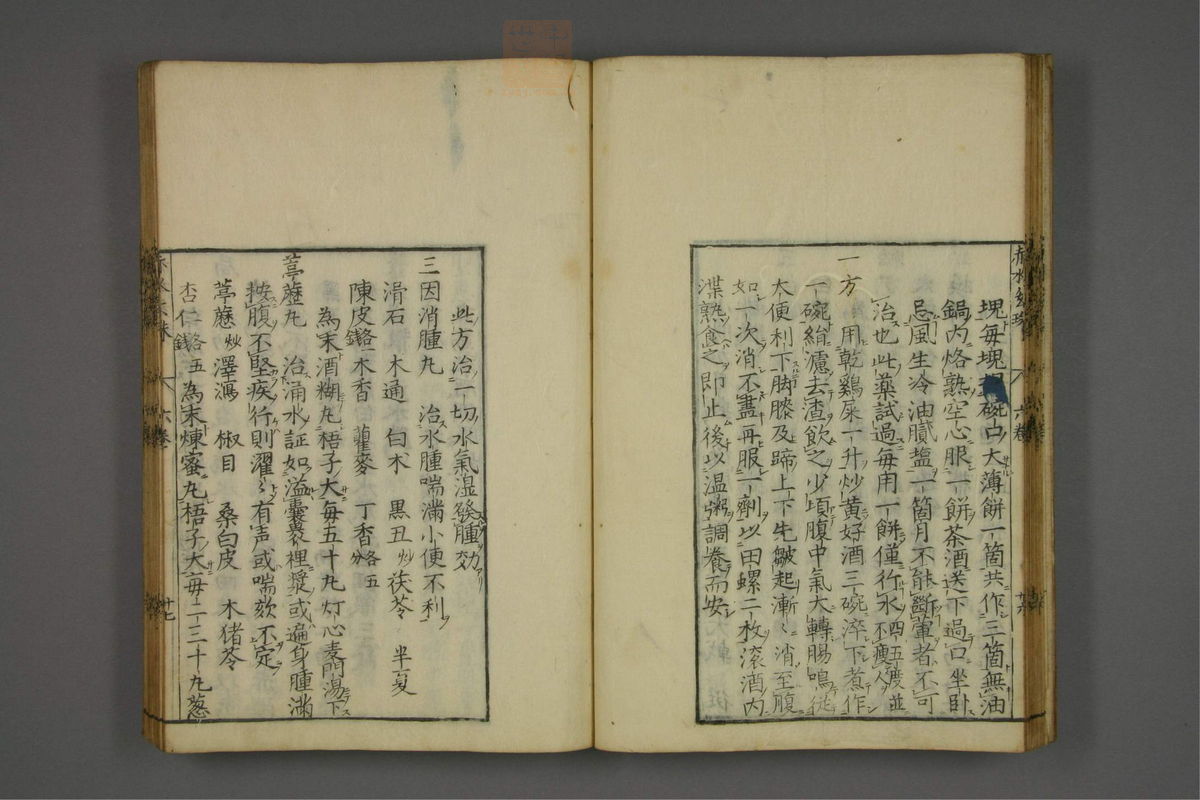 赤水玄珠 六卷 十六
塊每塊 碗口大薄餅一箇共作三箇無油
鍋内烙熟空心服一餅茶酒送下過口坐卧
忌風生冷油膩塩一箇月不能斷葷者不可
治也此藥試過每用一餅僅行水四五度並不瘦人
一方 用乾鷄屎一升炒黄好酒三碗淬下煮作
一碗絹濾去渣飲之少頃腹中氣大轉腸鳴從
大便利下脚膝及蹄上下先皺起漸〻消至腹
如一次消不盡再服一劑以田螺二枚滚酒内
渫熟食之即止後以温粥調養而安
此方治一切水氣湿發腫効
三因消腫丸 治水腫喘滿小便不利
滑石 木通 白朮 黒丑炒 茯苓 半夏
陳皮各一錢 木香 瞿麥 丁香各五分
為末酒糊丸梧子大每五十丸灯心麦門湯下
葶藶丸 治涌水証如溢囊裹裡漿或遍身腫滿
按腹不堅疾行則濯〻有声或喘欬不定
葶藶炒 澤瀉 椒目 桑白皮 木猪苓
杏仁各五錢 為末煉蜜丸梧子大每二三十丸葱
赤水玄珠 六卷 十七